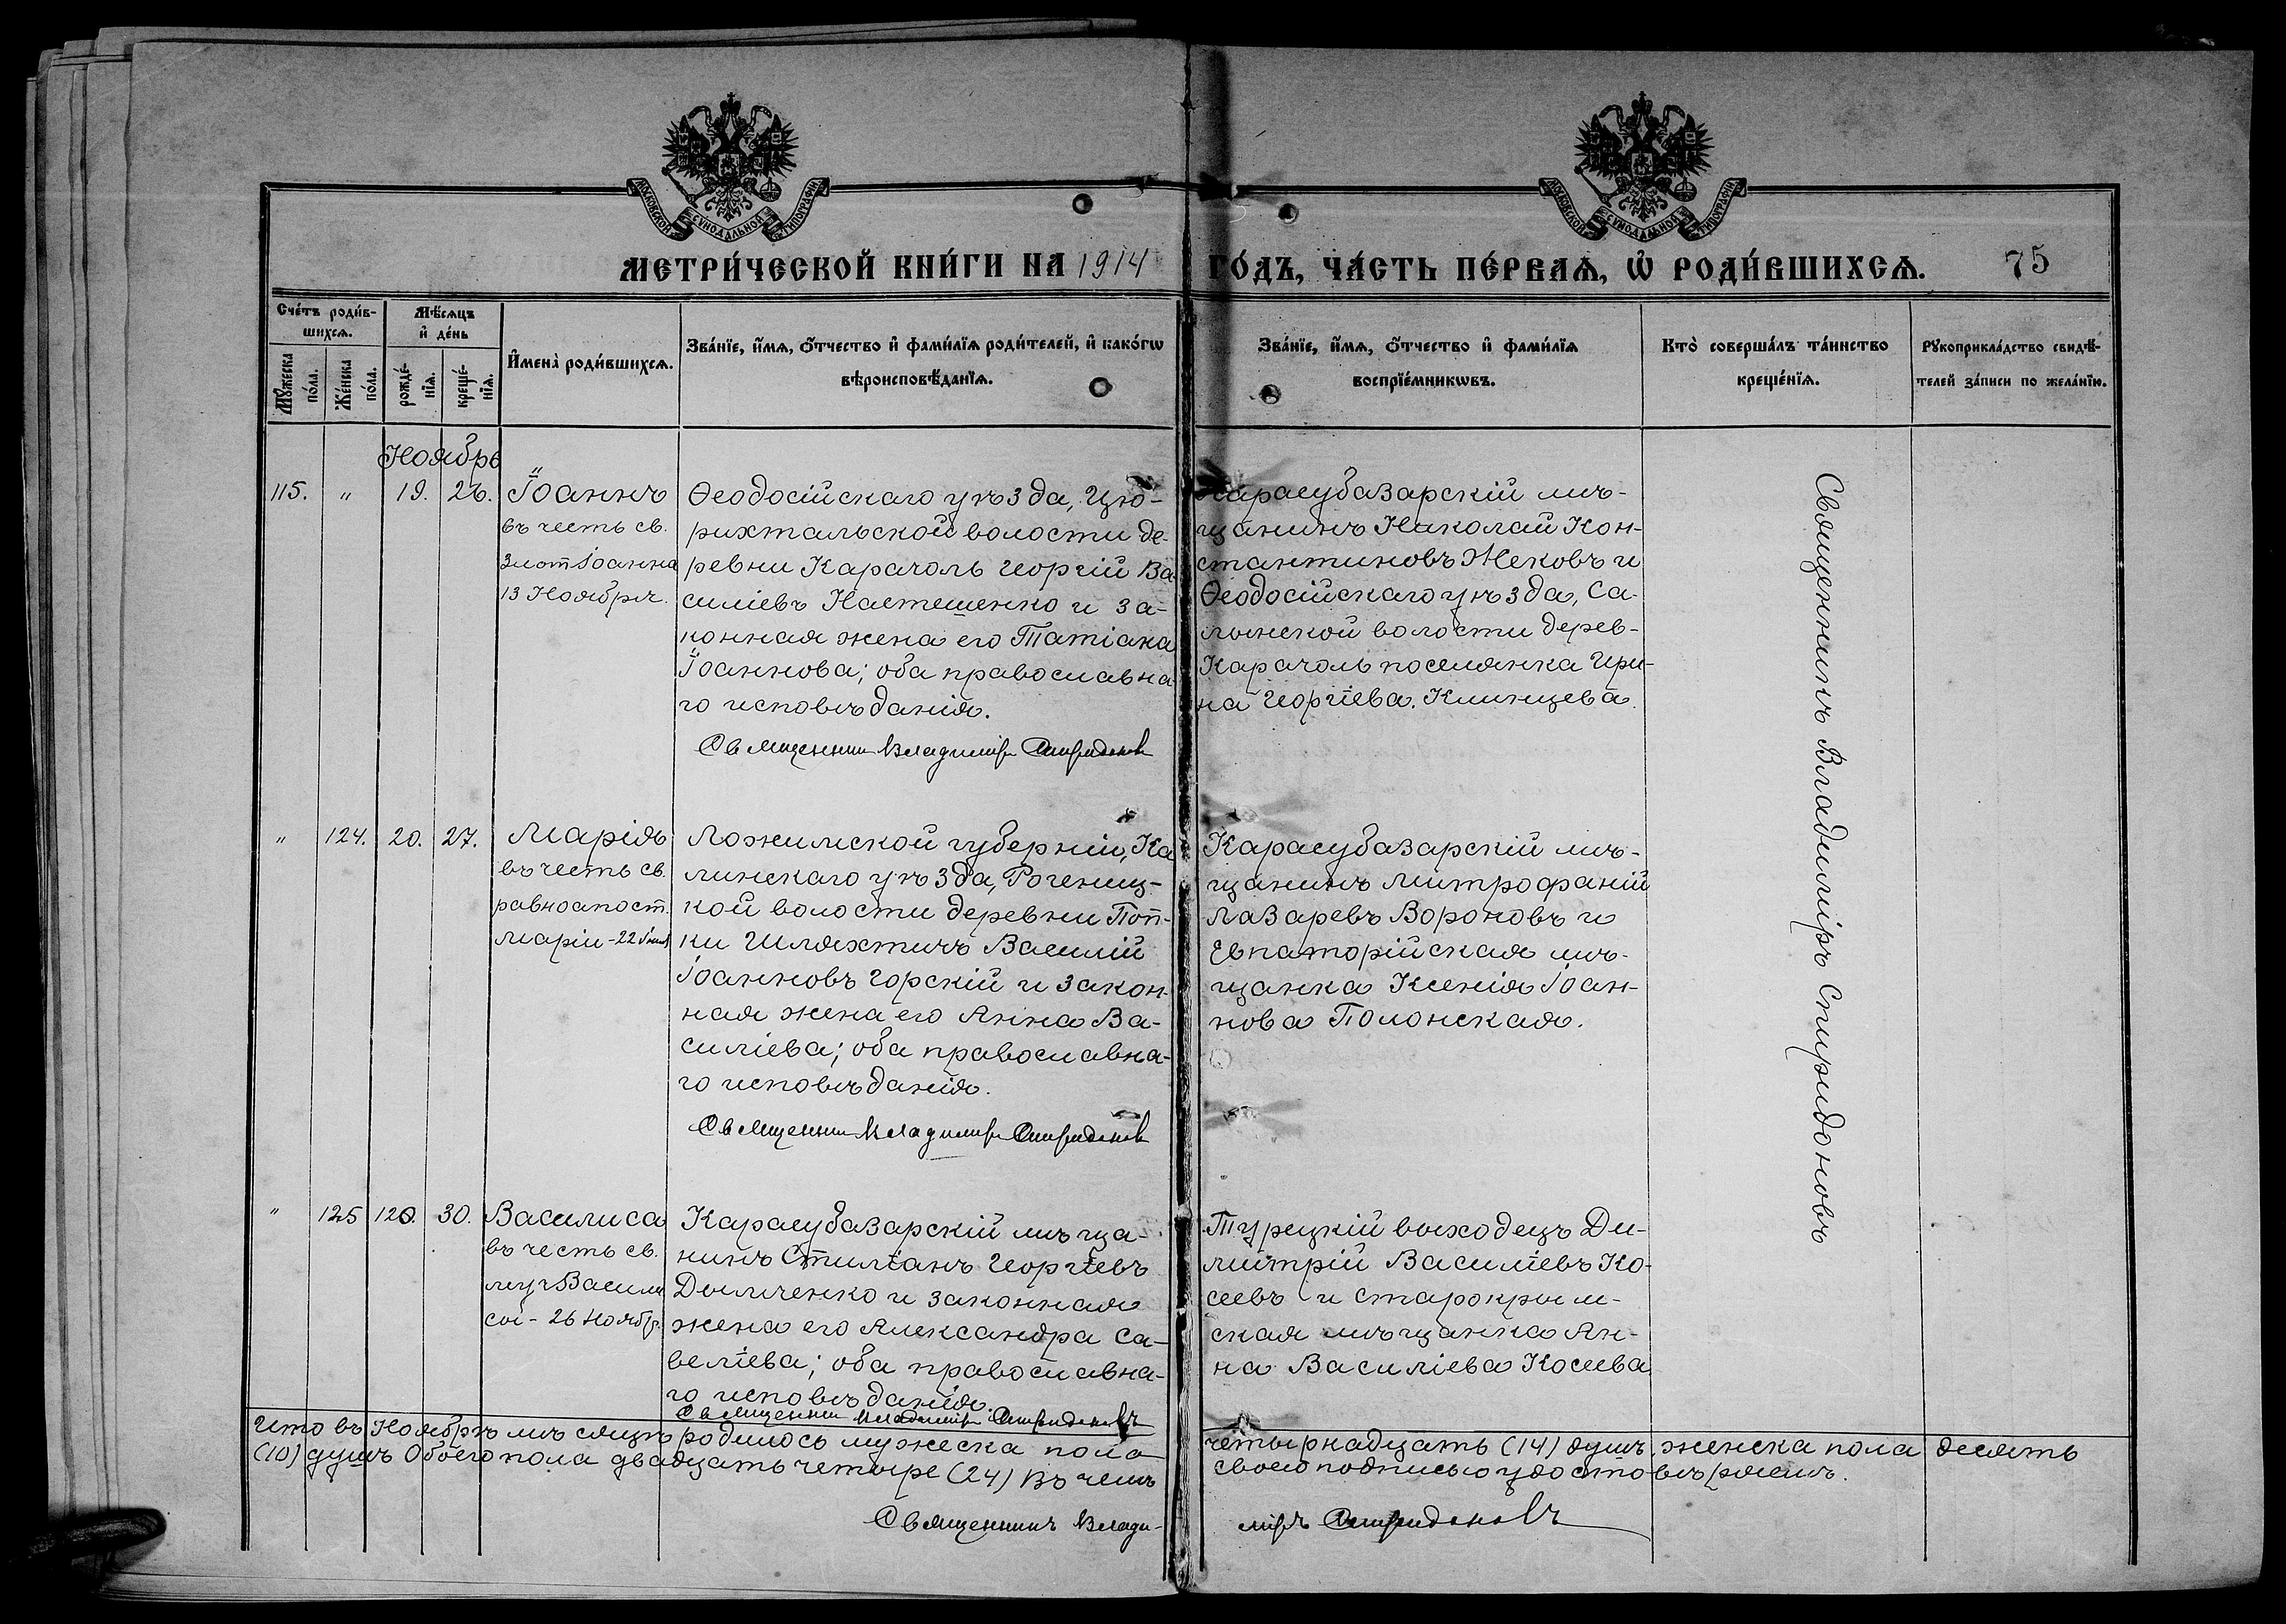 МОСКОВСКОЙ СѴНОДАЛЬНОЙ ТИПОГРАФІИ
МОСКОВСКОЙ СѴНОДАЛЬНОЙ ТИПОГРАФІИ
МЕТРИ́ЧЕСКОЙ КНИ́ГИ НА 1914
ГО́ДЪ, ЧА́СТЬ ПЕ́РВАѦ, Ѡ҆ РОДИ́ВШИХСѦ.
75
Сче́тъ роди́в-
шихсѧ.
Мѣ́сѧцъ
и҆ де́нь
Мꙋ́жеска
по́ла.
Же́нска
по́ла.
рожде́-
нїѧ.
креще́-
нїѧ.
И҆мена̀ роди́вшихсѧ.
Зва́нїе, и҆́мѧ, ѻ҆́тчество и҆ фами́лїѧ роди́телей, и҆ како́гѡ
вѣроисповѣ́данїѧ.
Зва́нїе, и҆́мѧ, ѻ҆́тчество и҆ фами́лїѧ
воспрїе́мникѡвъ.
Кто̀ соверша́лъ та́инство
креще́нїѧ.
Рꙋкоприкла́дство свидѣ́-
телей за́писи по жела́нїю.
Ноябрь
115. " 19. 26. Іоаннъ
въ честь св.
Злот Іоанна
13 Ноября.
Ѳеодосійскаго уѣзда, Цю-
рихтальской волости де-
ревни Карачоль Георгій Ва
силіевъ Настешенко и за-
конная жена его Татіана
Іоаннова; оба православна
го исповѣданія.
Священник Владимір Спиридонов
Карасубазарскій мѣ-
щанинъ Николай Кон-
стантиновъ Жековъ и
Ѳеодосійскаго уѣзда, Са-
лынской волости дерев-
Карачоль поселянка Ири-
на Георгіева Клинцева
Священникъ Владиміръ Спиридоновъ
" 124. 20. 27. Марія
въ честь св.
равноапост.
Маріи - 22 Іюля
Ломжимской губерніи, Ко
линскаго уѣзда, Рогениц-
кой волости деревни Поп-
ки Шляхтичъ Василій
Іоанновъ Горскій и закон-
ная жена его Анна Ва-
силіева; оба православна-
го исповѣданія.
Священник Владимір Спиридонов
Карасубазарскій мѣ-
щанинъ Митрофаній
Лазаревъ Вороновъ и
Евпаторійская мѣ-
щанка Ксенія Іоан-
нова Полонская.
" 125 120. 30. Василиса
въ честь св.
муч Васили
сы - 26 Ноябр.
Карасубазарскій мѣща-
нинъ Стиліанъ Георгіевъ
Дымченко и законная
жена его Александра Са-
веліева; оба православна-
го исповѣданія.
Священник Владимір Спиридоновъ
Турецкій выходецъ Ди-
митрій Василіевъ Ко-
сеевъ и старокрым-
ская мѣщанка Ан-
на Василіева Косеева
Что въ Ноябрѣ мѣсяцѣ родилось мужеска пола четырнадцать (14) душъ, женска пола десять
(10) душъ Обоего пола двадцать четыре (24) въ чемъ своею подписью удостовѣряемъ.
Священникъ Влади-
міръ Спиридоновъ